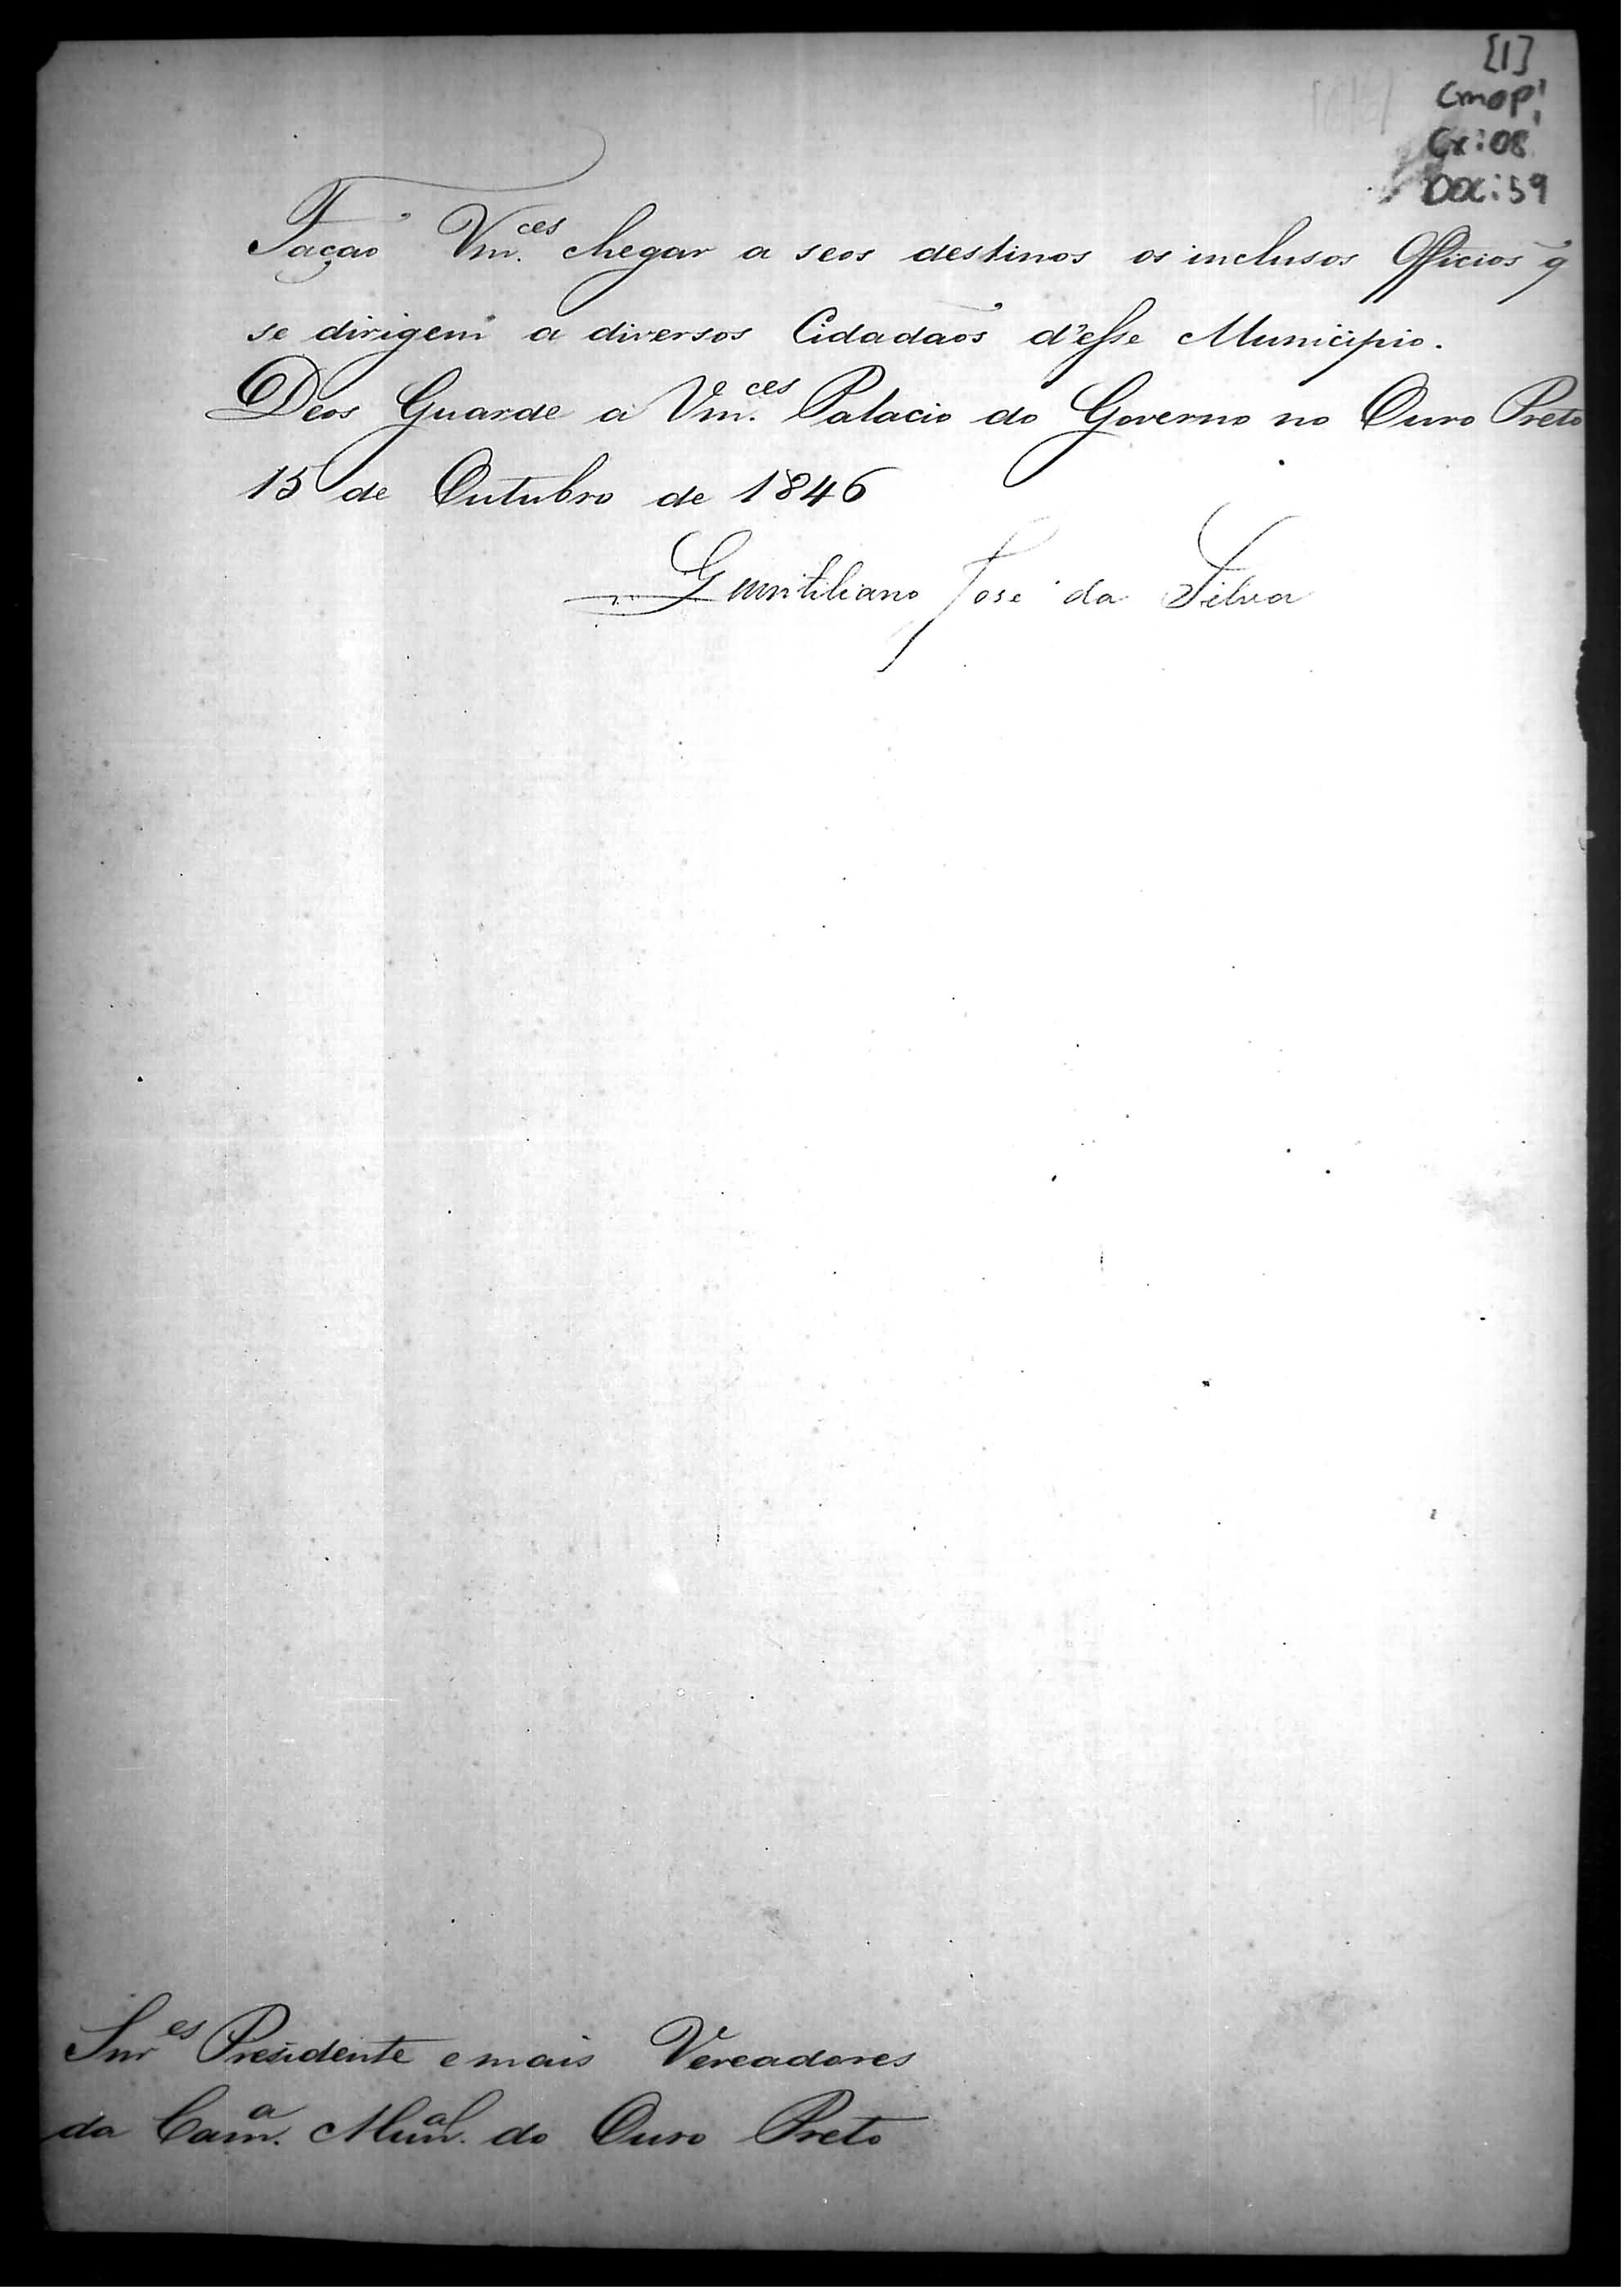 [1]
CMOP
Cx: 08
DOC: 59
Fação Vm.ces chegar a seos destinos os inclusos Officios q̃
se dirigem a diversos Cidadãos d'esse Municipio.
Deos Guarde a Vm.ces Palacio do Governo no Ouro Preto
15 de Outubro de 1846
Quintiliano José da Silva
Snr.es Presidente e mais Vereadores
da Cam.a Mun.al do Ouro Preto